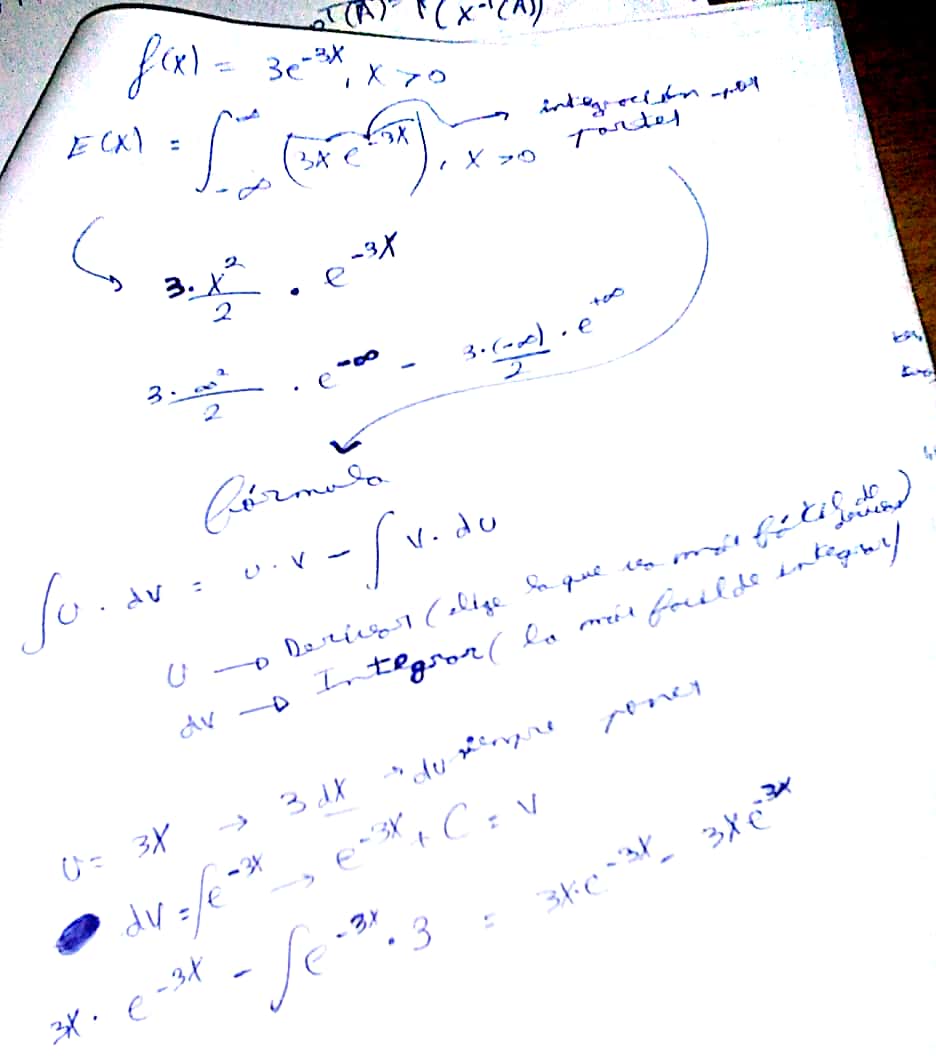 P(X⁻¹(A))
f(x) = 3e^-3X, X > 0
E(X) = ∫_-∞^∞ (3X e^-3X), X > 0 → integración por partes
3 · X²/2 · e^-3X
3 · ∞²/2 · e^-∞ - 3·(-∞)/2 · e^+∞
fórmula
∫U · dv = u · v - ∫v · du
U → Derivar (elige la que sea más fácil de derivar)
dv → Integrar (la más facil de integrar)
U = 3X → 3 dX → du siempre pones
dV = ∫e^-3X → e^-3X + C = V
3X · e^-3X - ∫e^-3X · 3 = 3X·e^-3X - 3Xe^-3X